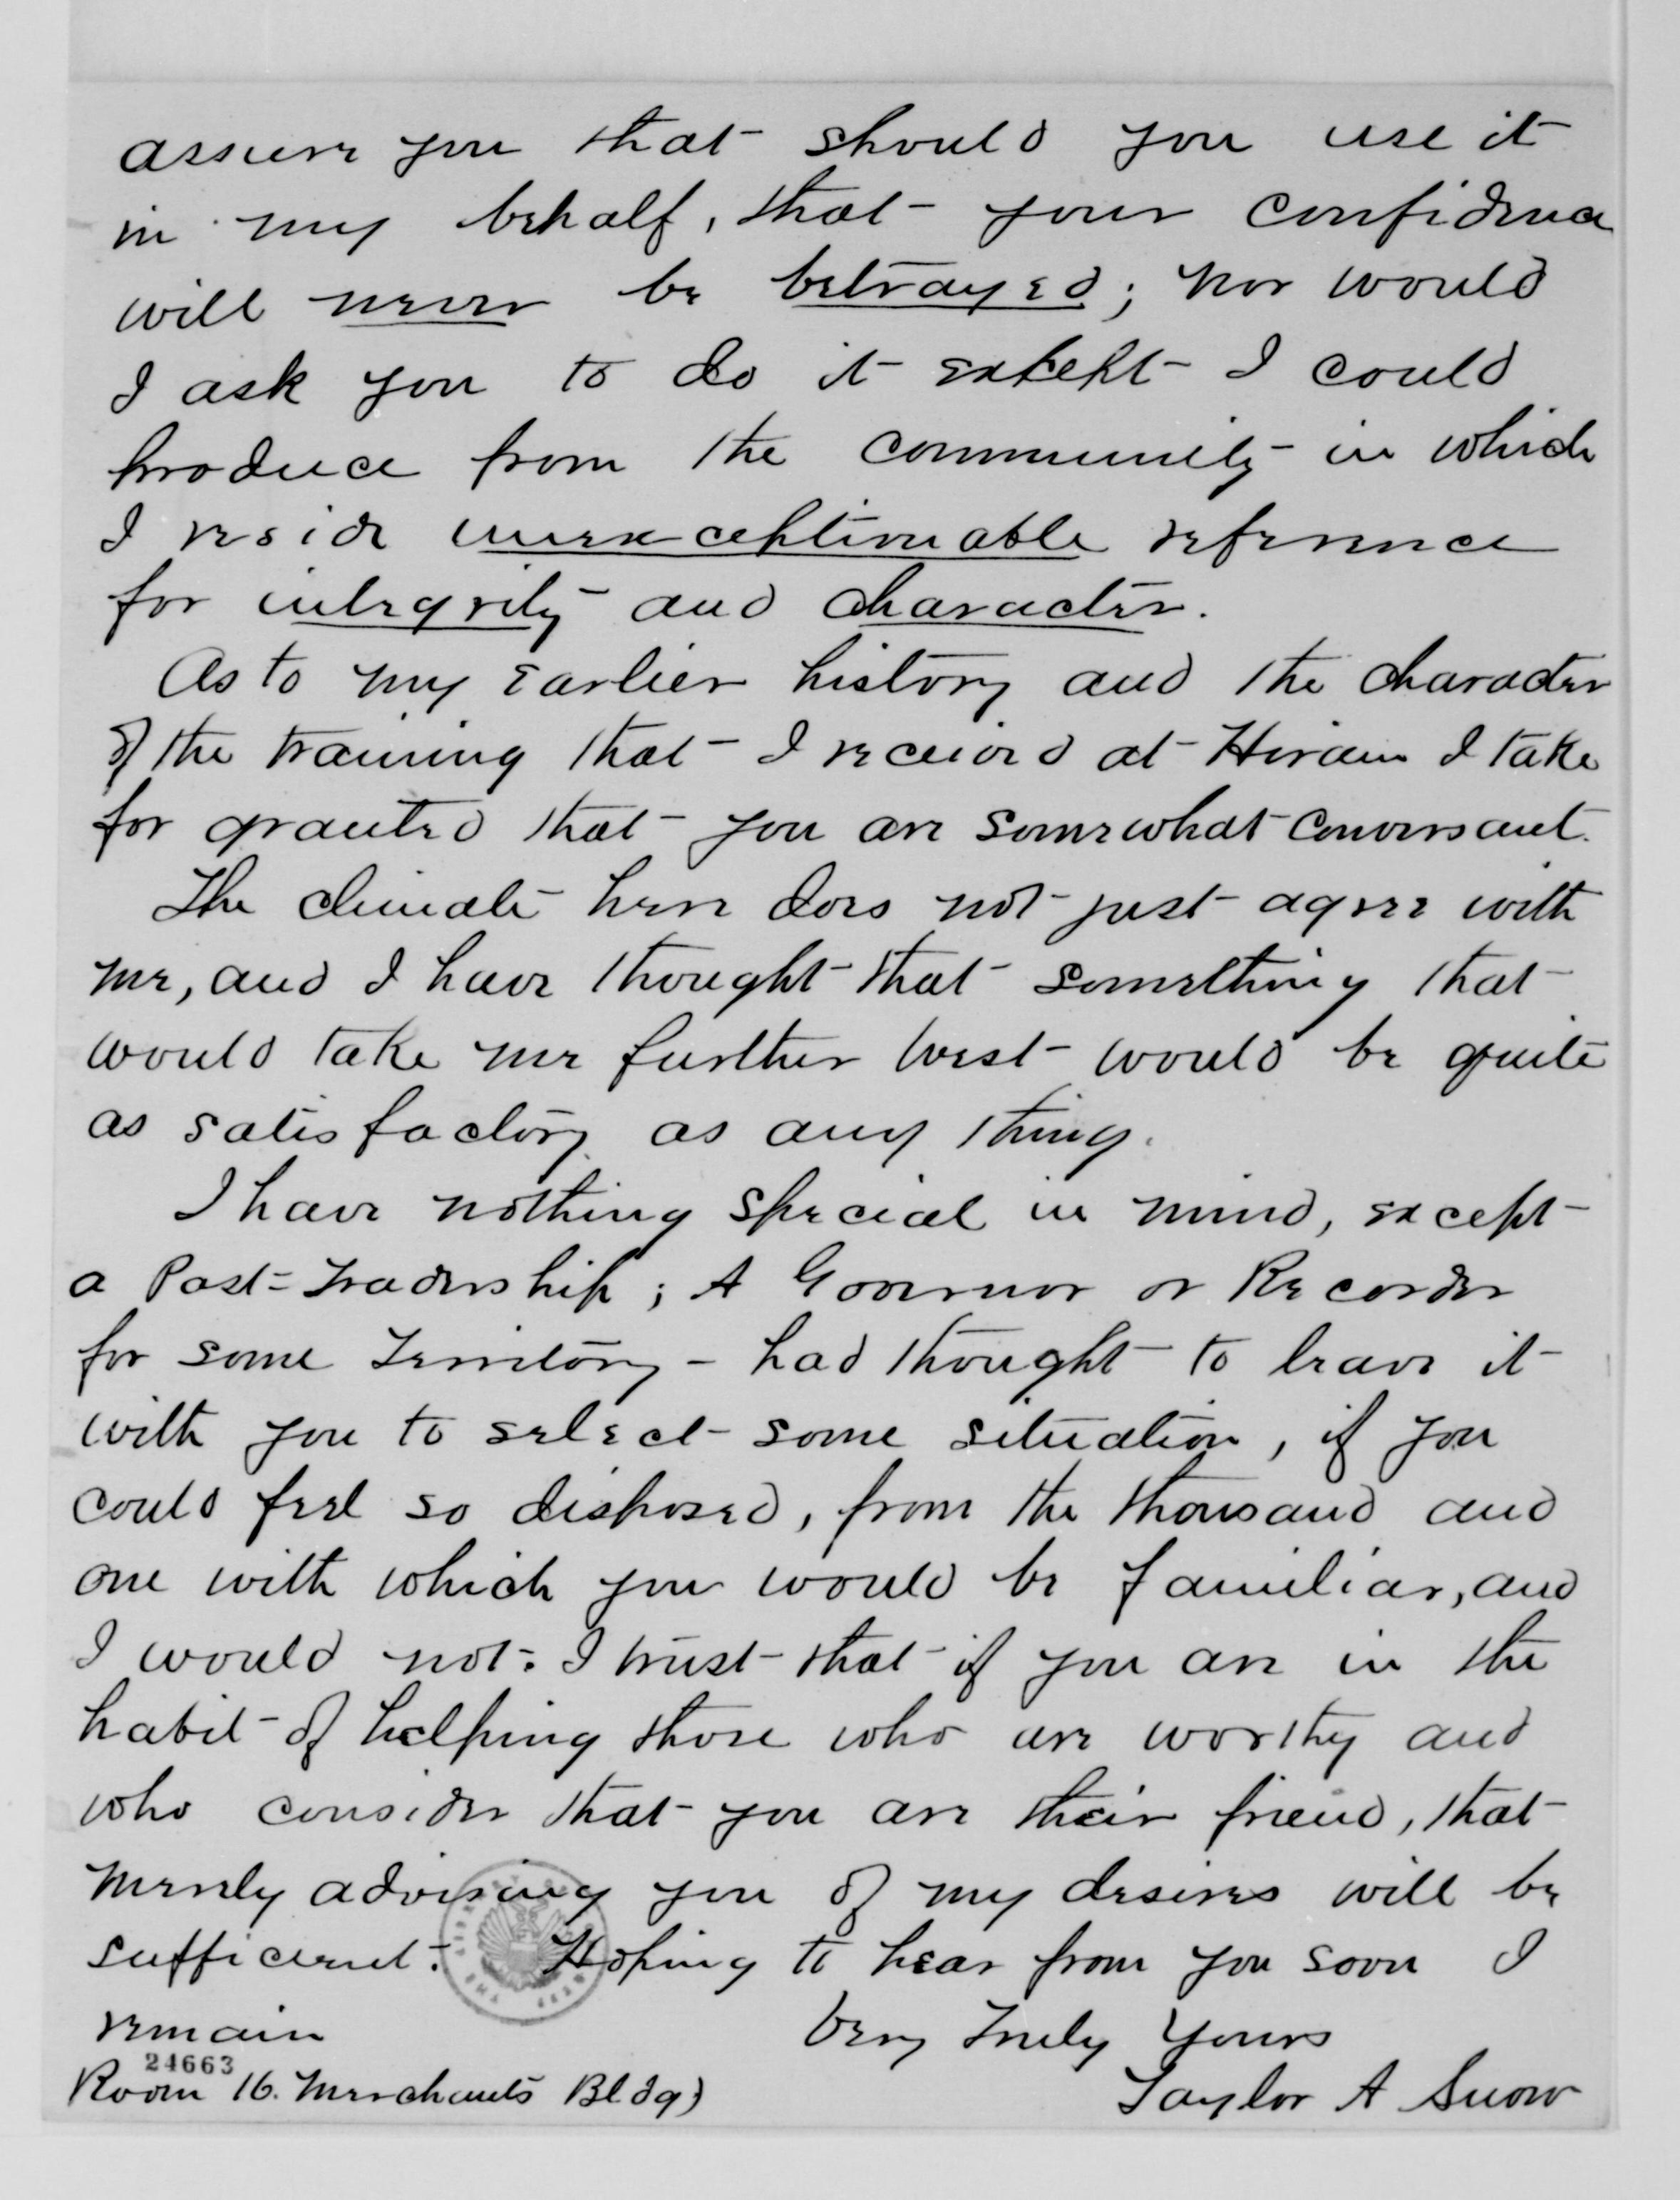 assure you that should you use it
in my behalf, that your confidence
will never be betrayed; nor would
I ask you to do it except I could
produce from the community in which
I reside unexceptionable reference
for integrity and character.
As to my earlier history and the character
of the training that I received at Hiram I take
for granted that you are somewhat conversant.
The climate here does not just agree with
me, and I have thought that something that
would take me further west would be quite
as satisfactory as any thing.
I have nothing special in mind, except
a Post-Tradership; A Governor or Recorder
for some Territory - had thought to leave it
with you to select some situation, if you
could feel so disposed, from the thousand and
one with which you would be familiar, and
I would not. I trust that if you are in the
habit of helping those who are worthy and
who consider that you are their friend, that
merely advising you of my desires will be
sufficient. Hoping to hear from you soon I
remain Very Truly Yours
24663
Room 16. Merchants Bldg) Taylor A Snow